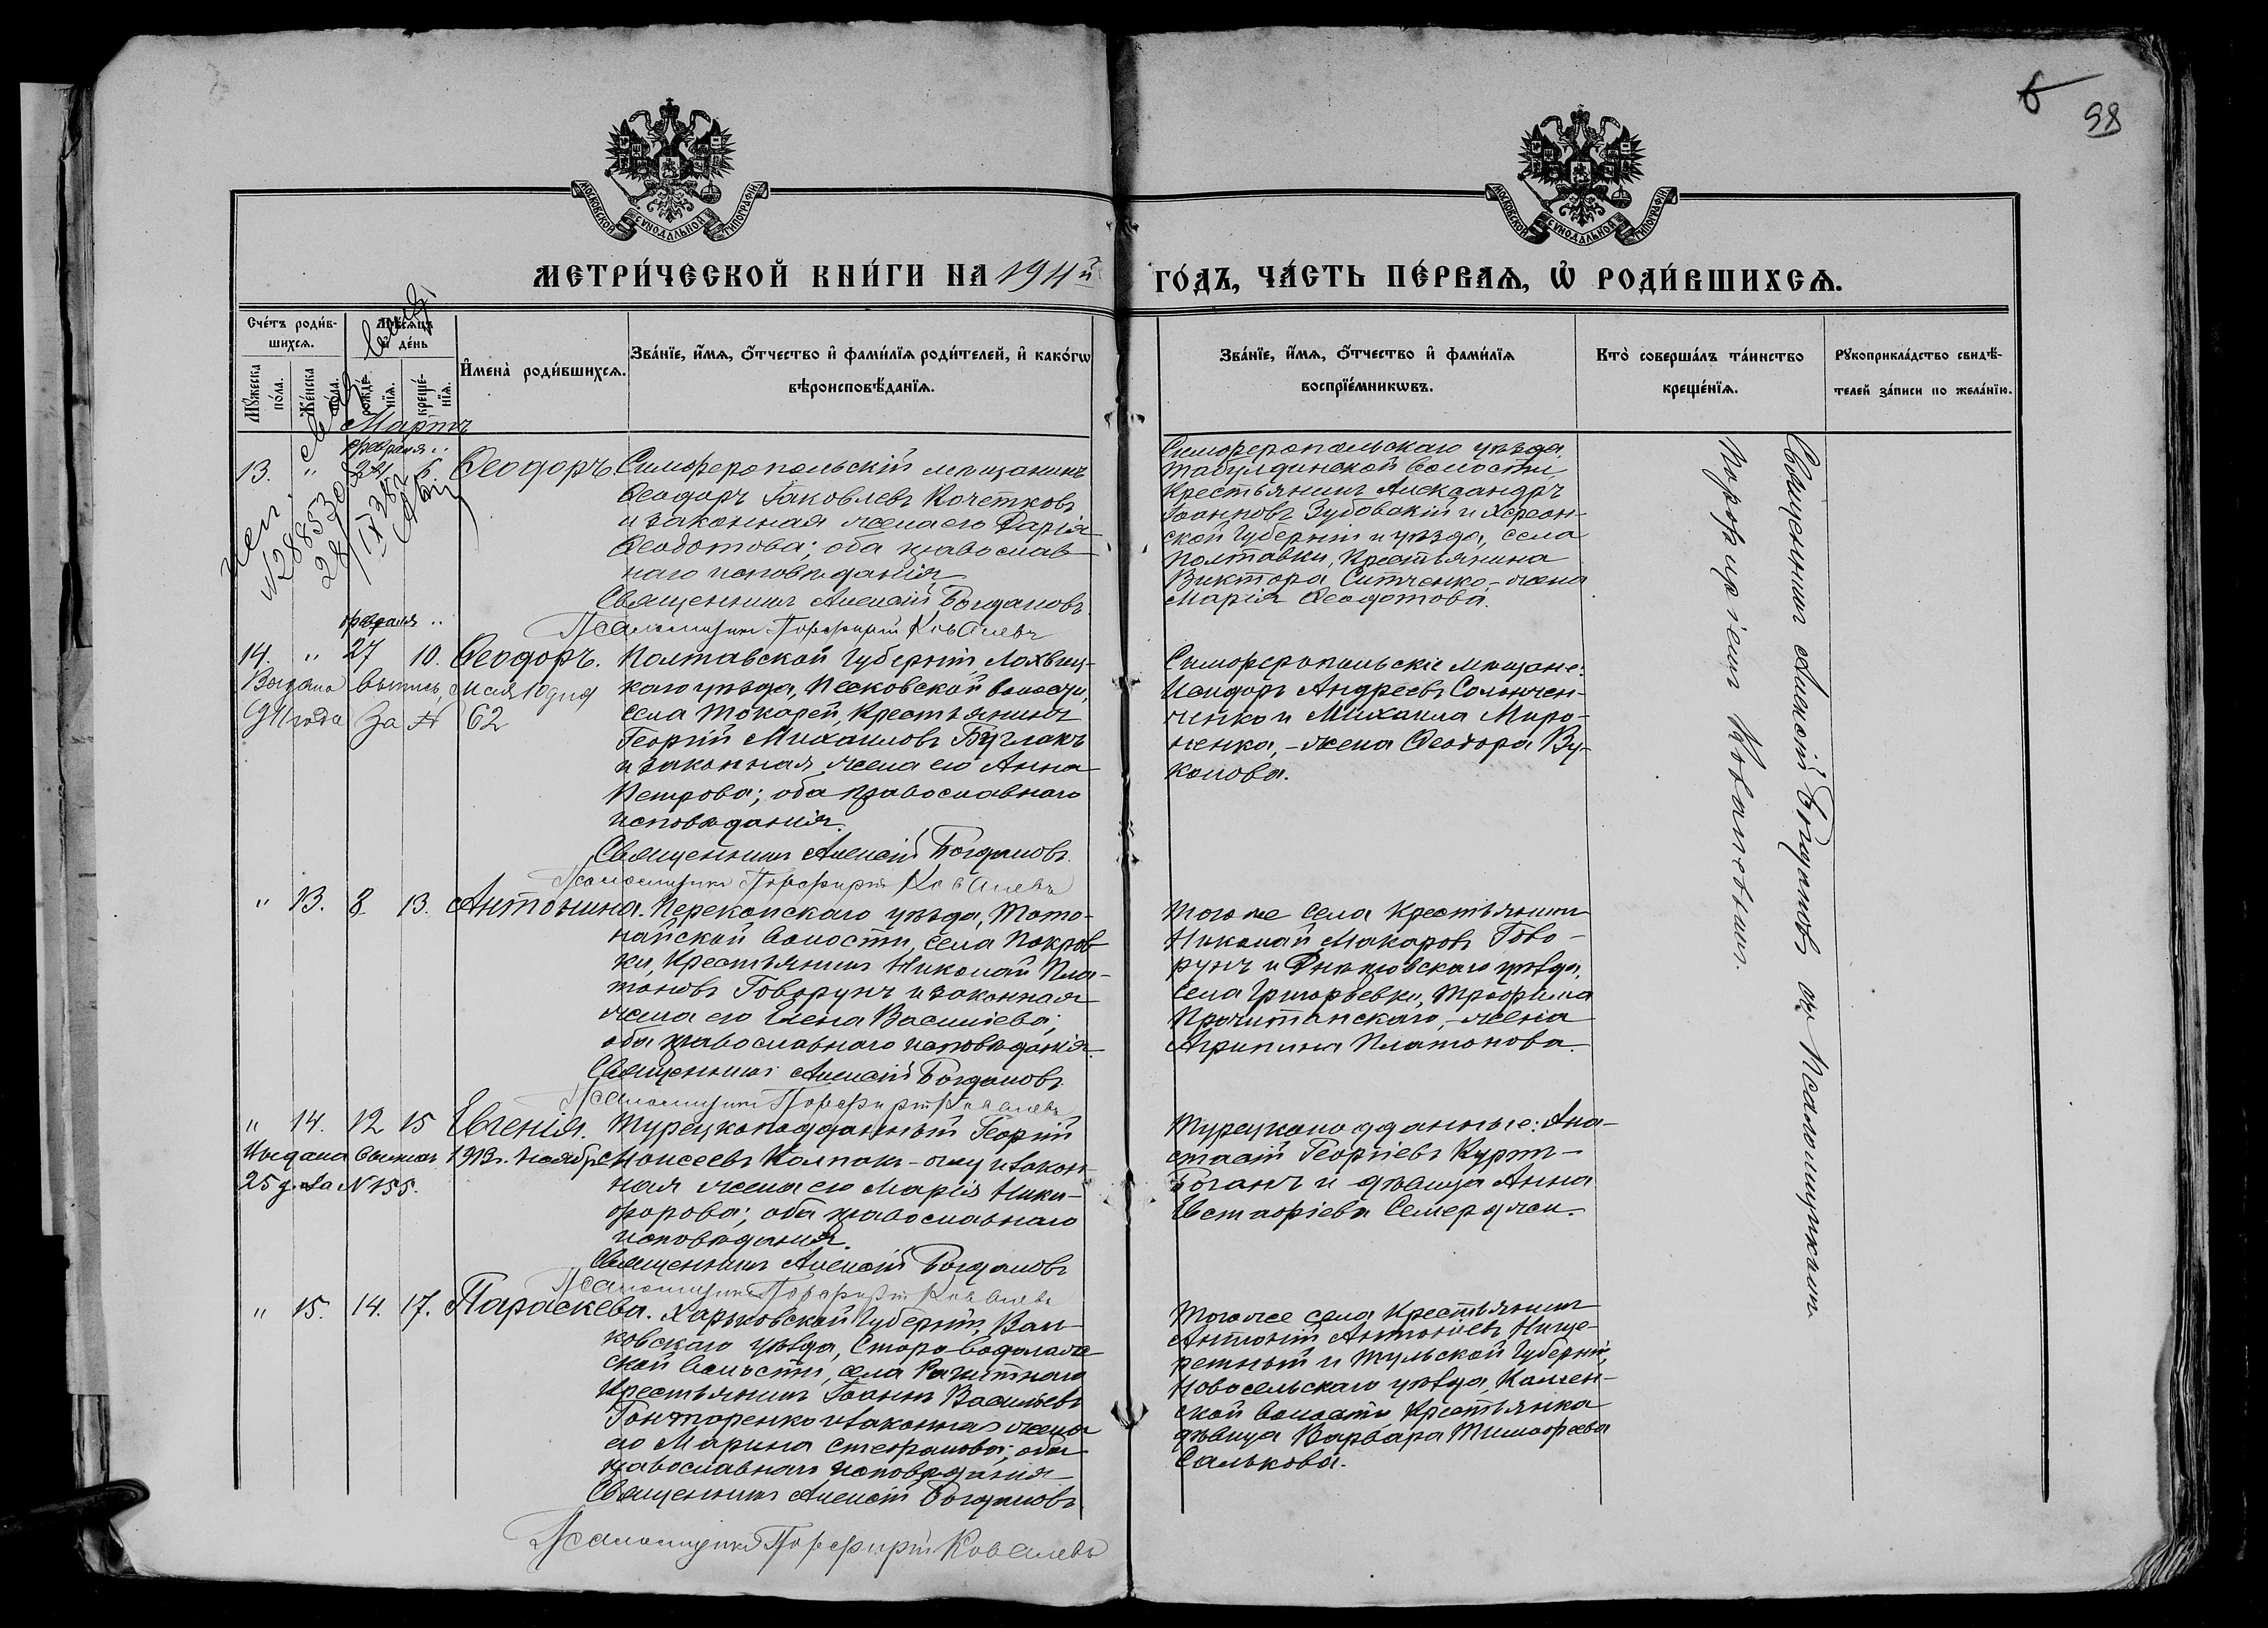 6
98
МОСКОВСКОЙ СѴНОДАЛЬНОЙ ТИПОГРАФІИ
МОСКОВСКОЙ СѴНОДАЛЬНОЙ ТИПОГРАФІИ
МЕТРИ́ЧЕСКОЙ КНИ́ГИ НА 1911й
ГО́ДЪ, ЧА́СТЬ ПЕ́РВАѦ, Ѿ РОДИ́ВШИХСѦ.
Сче́тъ роди́в-
шихсѧ.
Мꙋ́жеска по́ла.
Же́нска по́ла.
Мѣ́сѧцъ
и҆ де́нь
рожде́-нїѧ.
креще́-нїѧ.
И҆мена̀ роди́вшихсѧ.
Зва́нїе, и҆́мѧ, ѻ҆́тчество и҆ фами́лїѧ роди́телей, и҆ како́гѡ
вѣроисповѣ́данїѧ.
Зва́нїе, и҆́мѧ, ѻ҆́тчество и҆ фами́лїѧ
воспрїе́мникѡвъ.
Кто̀ соверша́лъ та́инство
креще́нїѧ.
Рꙋкоприкла́дство свидѣ́-
телей за́писи по жела́нїю.
Мартъ
февраля
13. " 24 6 Ѳеодоръ. Симферопольскій мѣщанинъ
Ѳеодоръ Іаковлевъ Кочетковъ
и законная жена его Дарія
Ѳеодотова; оба православ-
наго исповѣданія
Священникъ Алексій Богдановъ
Псаломщикъ Порфирій Ковалевъ
№ 288530
28/IX 38г
Симферопольскаго уѣзда,
Табулдинской волости,
Крестьянинъ Александръ
Іоанновъ Зубовскій и Херсон-
ской Губерніи и уѣзда, села
Полтавки, Крестьянина
Виктора Ситченко - жена
Марія Ѳеодотова.
февраля
14. " 27 10. Ѳеодоръ. Полтавской Губерніи, Лохвиц-
каго уѣзда, Песковской волости,
села Токарей, Крестьянинъ
Георгій Михаиловъ Буглакъ
и законная жена его Анна
Петрова; оба православнаго
исповѣданія.
Священникъ Алексій Богдановъ.
Псаломщикъ Порфирій Ковалевъ
Выдана выпись, Мая 10 дня
911 года за № 62
Симферопольскіе мѣщане:
Исидоръ Андреевъ Солончен-
ченко и Михаила Миро-
ненка, - жена Ѳеодора Ву-
колова.
" 13. 8 13. Антонина. Перекопскаго уѣзда, Тото-
найской волости, села Покров-
ки, Крестьянинъ Николай Пла-
тоновъ Говорунъ и законная
жена его Елена Василіева;
оба православнаго исповѣданія.
Священникъ Алексій Богдановъ
Псаломщикъ Порфирій Ковалевъ
Того же села Крестьянинъ
Николай Макаровъ Гово-
рунъ и Днѣпровскаго уѣзда,
села Григорьевки, Трофима
Прочитанскаго, - жена
Агрипина Платонова.
" 14. 12 15 Евгенія. Турецкоподданный Георгій
Моисеевъ Колпакъ-оглу и закон-
ная жена его Марія Ники-
форова; оба православнаго
исповѣданія.
Священникъ Алексій Богдановъ
Псаломщикъ Порфирій Ковалевъ
Выдана выпись 1913г. Ноября
25 д. за № 155.
Турецкоподданные: Ана-
стасій Георгіевъ Куртъ-
Боганъ и дѣвица Анна
Евстафіева Семерджи.
" 15. 14. 17. Параскева. Харьковской Губерніи, Вал-
ковскаго уѣзда, Старо-Водолаж-
ской волости, села Ракитнаго
Крестьянинъ Іоаннъ Васильевъ
Гонтаренко и законная жена
его Марина Стефанова; оба
православнаго исповѣданія
Священникъ Алексій Богдановъ
Псаломщикъ Порфирій Ковалевъ
Того же села Крестьянинъ
Антоній Антоніевъ Нище-
ретный и Тульской Губерніи,
Новосельскаго уѣзда, Камен-
ской волости Крестьянка
дѣвица Варвара Тимофеева
Салькова.
Священникъ Алексій Богдановъ съ Псаломщикомъ
Порфиріемъ Ковалевымъ.